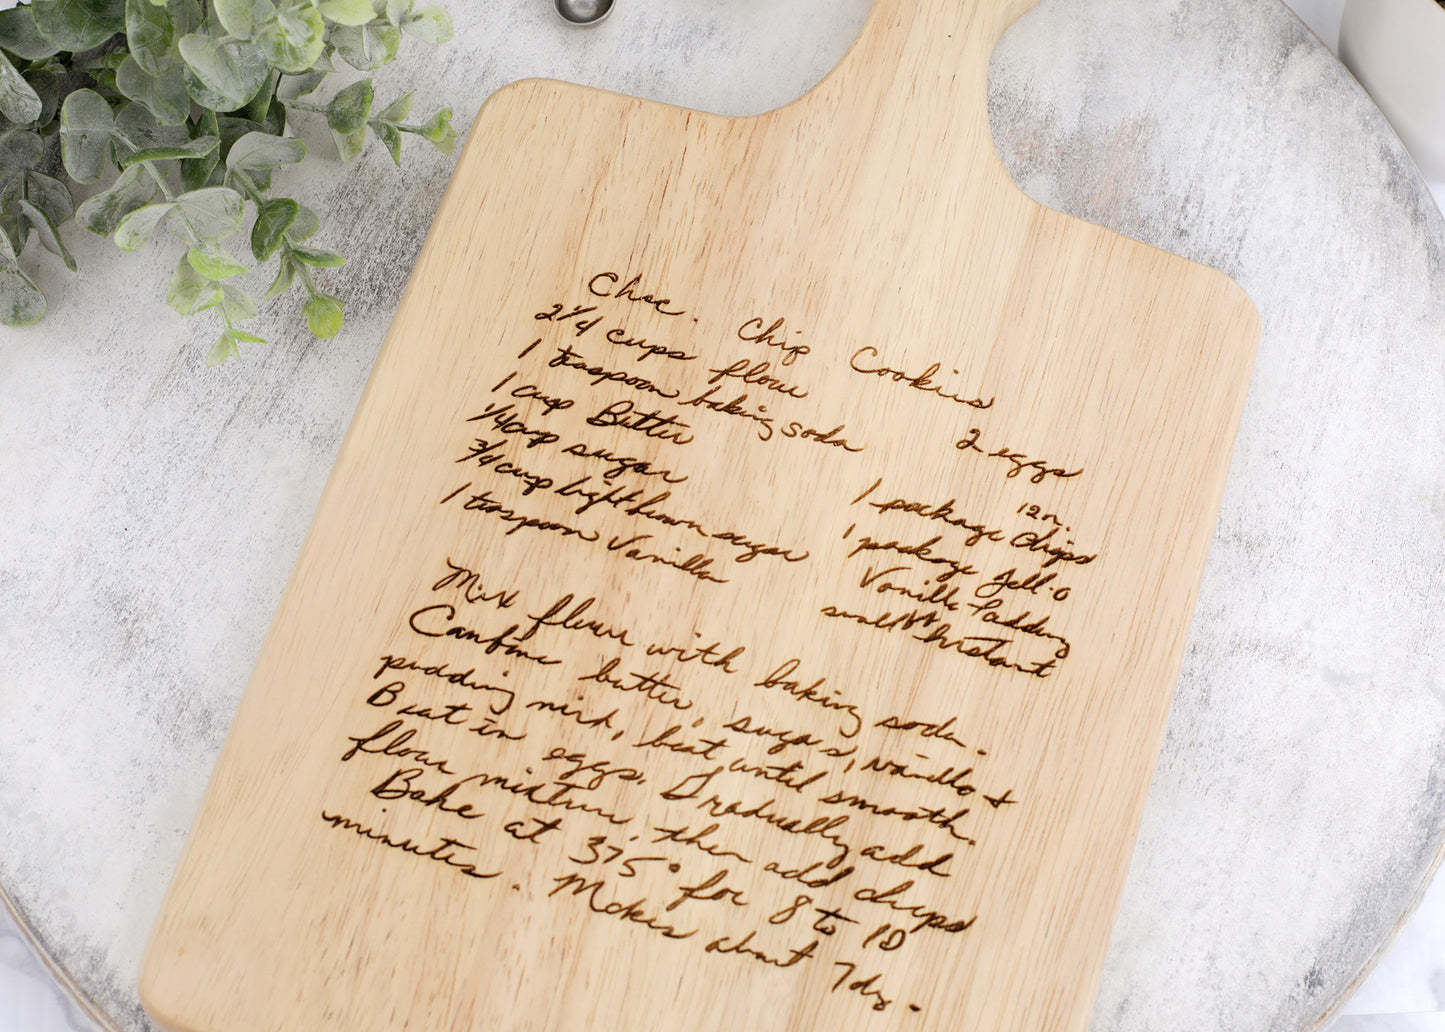 Choc. Chip Cookies
2 1/4 cups flour
1 teaspoon baking soda
1 cup Butter
1/4 cup sugar
3/4 cup light brown sugar
1 teaspoon Vanilla
2 eggs
12 oz.
1 package Chips
1 package Jell-O
Vanilla Pudding
small Instant
Mix flour with baking soda.
Combine butter, sugars, vanilla +
pudding mix, beat until smooth.
Beat in eggs. Gradually add
flour mixture, then add chips
Bake at 375° for 8 to 10
minutes. Makes about 7 dz.